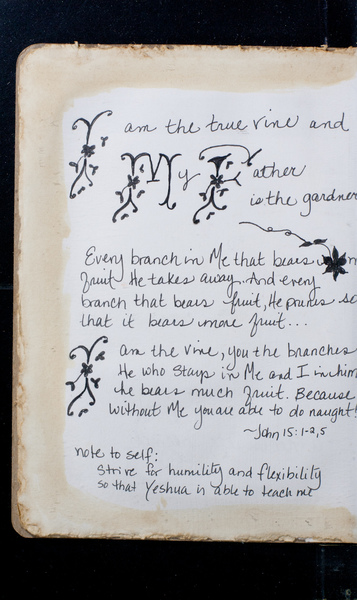 I am the true vine and
My Father
is the gardner
Every branch in Me that bears
fruit He takes away. And every
branch that bears fruit, He prunes so
that it bears more fruit...
I am the vine, you the branches
He who stays in Me and I in him
he bears much fruit. Because
without Me you are able to do naught!
~John 15:1-2,5
note to self:
strive for humility and flexibility
so that Yeshua is able to teach me